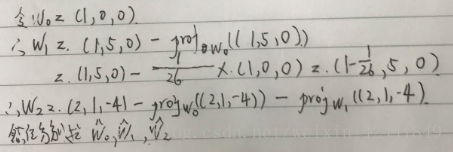 令 W₀ = (1,0,0)
∴ W₁ = (1,5,0) - proj_W₀((1,5,0))
= (1,5,0) - 1/26 × (1,0,0) = (1-1/26, 5, 0)
∴ W₂ = (2,1,-4) - proj_W₀((2,1,-4)) - proj_W₁((2,1,-4)
Ŵ₀, Ŵ₁, Ŵ₂